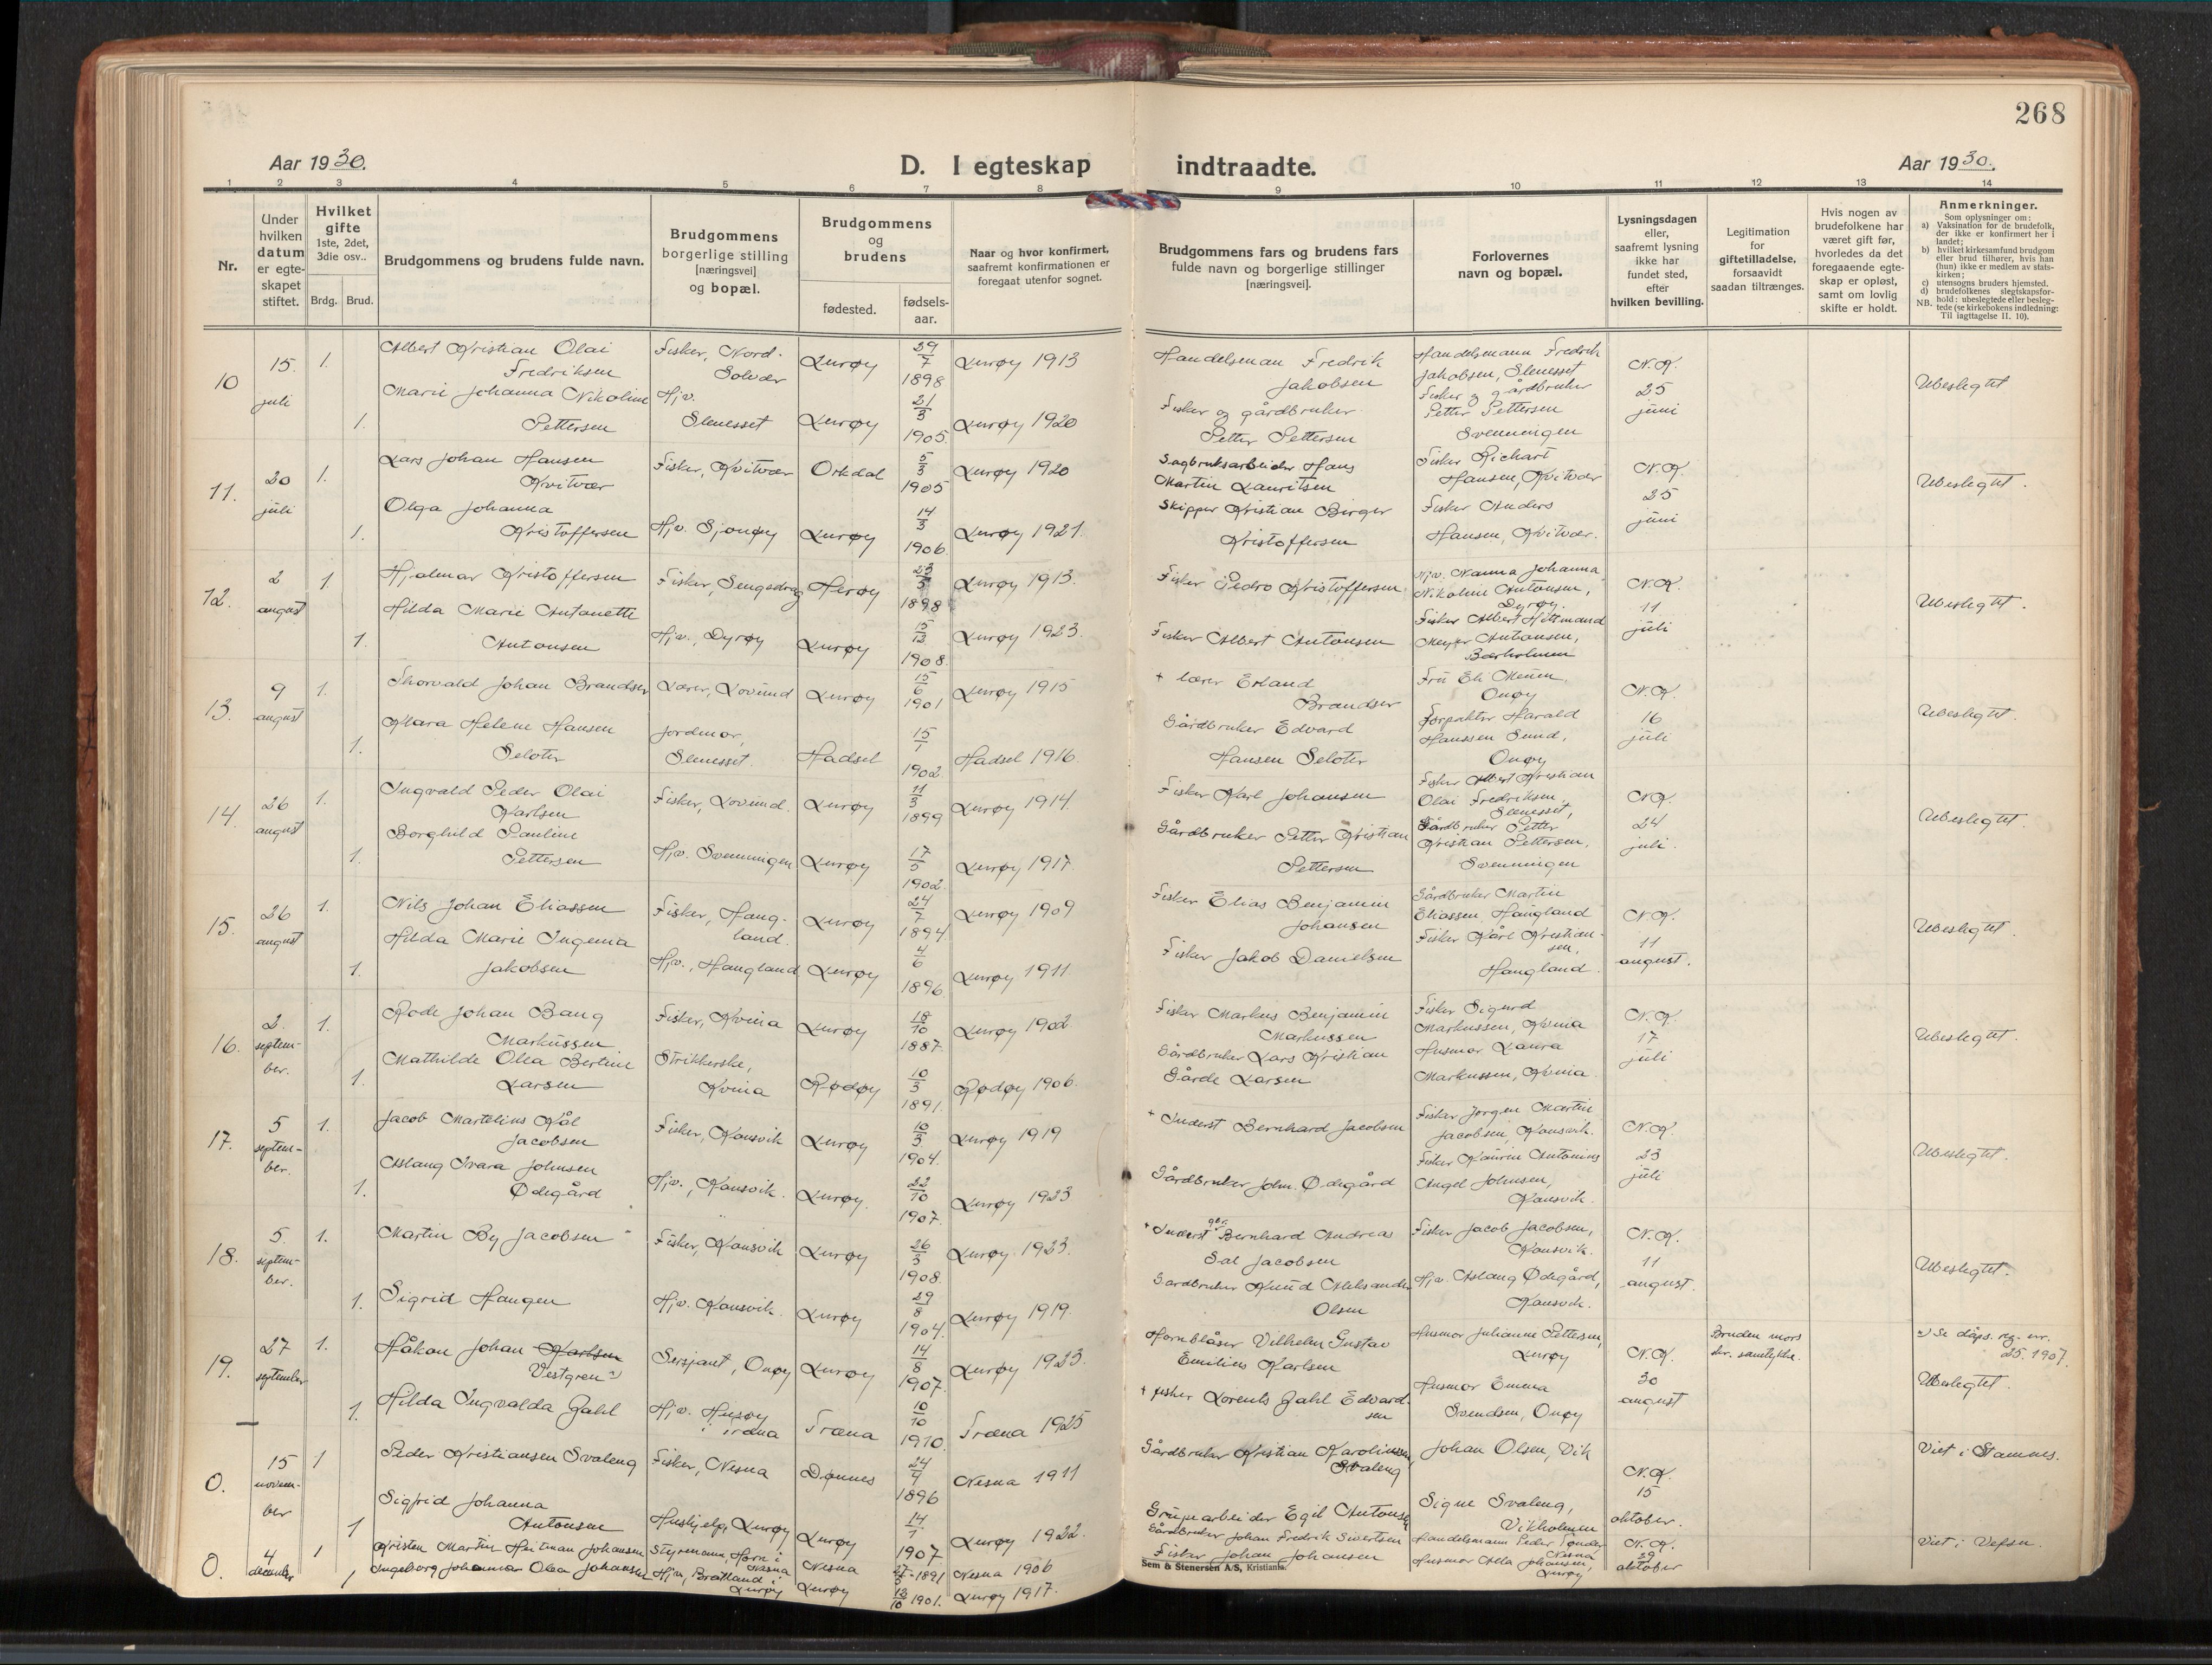 268
Aar 1930.
D. I egteskap indtraadte.
Aar 1930.
1 2 3 4 5 6 7 8 9 10 11 12 13 14
Nr.
Under hvilken datum er egteskapet stiftet.
Hvilket gifte 1ste, 2det, 3die osv..
Brdg. Brud.
Brudgommens og brudens fulde navn.
Brudgommens borgerlige stilling [næringsvei] og bopæl.
Brudgommens og brudens
fødested.
fødsels-aar.
Naar og hvor konfirmert, saafremt konfirmationen er foregaat utenfor sognet.
Brudgommens fars og brudens fars fulde navn og borgerlige stillinger [næringsvei].
Forlovernes navn og bopæl.
Lysningsdagen eller, saafremt lysning ikke har fundet sted, efter hvilken bevilling.
Legitimation for giftetilladelse, forsaavidt saadan tiltrænges.
Hvis nogen av brudefolkene har været gift før, hvorledes da det foregaaende egteskap er opløst, samt om lovlig skifte er holdt.
Anmerkninger.
Som oplysninger om:
a) Vaksination for de brudefolk, der ikke er konfirmert her i landet;
b) hvilket kirkesamfund brudgom eller brud tilhører, hvis han (hun) ikke er medlem av statskirken;
c) utensogns bruders hjemsted.
d) brudefolkenes slegtskapsforhold: ubeslegtede eller beslegtede (se kirkebokens indledning: Til iagttagelse II. 10).
NB.
10 15. juli 1. Albert Kristian Olai Fredriksen Fisker, Nord-Solvær Lurøy 29/7 1898 Lurøy 1913 Handelsman Fredrik Jakobsen Handelsmann Fredrik Jakobsen, Slenesset N.K. 25 juni Ubeslegtet
1. Marie Johanna Nikoline Pettersen Hjv. Slenesset Lurøy 21/3 1905. Lurøy 1920 Fisker og gårdbruker Petter Pettersen Fisker og gårdbruker Petter Pettersen Svenningen
11. 20 juli 1. Lars Johan Hansen Kvitvær Fisker, Kvitvær Orkdal 5/3 1905 Lurøy 1920 Sagbruksarbeider Hans Martin Lauritsen Fisker Richart Hansen, Kvitvær N.K. 25 juni Ubeslegtet.
1. Olga Johanna Kristoffersen Hjv. Sjonøy Lurøy 14/3 1906 Lurøy 1921. Skipper Kristian Birger Kristoffersen Fisker Anders Hansen, Kvitvær.
12. 2 august 1. Hjalmar Kristoffersen Fisker, Sengedrag Herøy 23/3 1898 Lurøy 1913. Fisker Pedro Kristoffersen Hjv. Nanna Johanna Nikoline Antonsen, Dyrøy. N.K. 11 juli Ubeslegtet.
1. Hilda Marie Antonette Antonsen Hjv., Dyrøy Lurøy 15/12 1908. Lurøy 1923. Fisker Albert Antonsen Fisker Albert Hitmand Meyer Antonsen,
13. 9 august 1. Thorvald Johan Brandser Lærer, Lovund Lurøy 15/6 1901 Lurøy 1915 + lærer Erland Brandser Fru Eli Meum, Onøy N.K. 16 juli Ubeslegtet.
1. Klara Helene Hansen Seloter Jordmor, Slenesset. Hadsel 15/1 1902 Hadsel 1916. Gårdbruker Edvard Hansen Seloter Forpakter Harald Hanssen Sund, Onøy
14. 26 august 1. Ingvald Peder Olai Karlsen Fisker, Lovund. Lurøy 11/3 1899 Lurøy 1914. Fisker Karl Johansen Fisker Albert Kristian Olai Fredriksen, Slenesset, N.K. 24 juli. Ubeslegtet.
1. Borghild Pauline Pettersen Hjv. Svenningen Lurøy 17/5 1902. Lurøy 1917. Gårdbruker Petter Kristian Pettersen Gårdbruker Petter Kristian Pettersen, Svenningen
15. 26 august 1. Nils Johan Eliassen Fisker, Haugland. Lurøy 24/7 1894. Lurøy 1909 Fisker Elias Benjamin Johansen Gårdbruker Martin Eliassen, Haugland N.K. 11 august. Ubeslegtet.
1. Hilda Marie Ingema Jakobsen Hjv., Haugland Lurøy 4/6 1896. Lurøy 1911 Fisker Jakob Danielsen Fisker Kårl Kristiansen, Haugland.
16. 2. september. 1. Rode Johan Bang Markussen Fisker, Kvina Lurøy 18/10 1887. Lurøy 1902 Fisker Markus Benjamin Markussen Fisker Sigurd Markussen, Kvina N.K. 17 juli Ubeslegtet.
1. Mathilde Olea Bertine Larsen Strikkerske, Kvina Rødøy 10/3 1891. Rødøy 1906. Gårdbruker Lars Kristian Gårde Larsen Husmor Laura Markussen, Kvina.
17. 5 september. 1. Jacob Martelius Kål Jacobsen Fisker, Konsvik Lurøy 10/3 1904. Lurøy 1919 + Inderst Bernhard Jacobsen Fisker Jørgen Martin Jacobsen, Konsvik. N.K. 23 juli Ubeslegtet.
1. Aslaug Ivara Johnsen Ødegård Hjv., Konsvik. Lurøy. 22/10 1907. Lurøy 1923 Gårdbruker John. Ødegård Fisker Laurin Antonius Angel Johnsen, Konsvik.
18. 5. september. 1. Martin By Jacobsen Fisker, Konsvik Lurøy 26/3 1908. Lurøy 1923. + Inderst Bernhard Andreas Sal Jacobsen Fisker Jacob Jacobsen, Konsvik. N.K. 11 august. Ubeslegtet.
1. Sigrid Haugen Hjv. Konsvik. Lurøy 29/8 1904. Lurøy 1919. Gårdbruker Knud Aleksander Olsen Hjv. Aslaug Ødegård, Konsvik.
19. 27 september 1. Håkon Johan Karlsen Vestgren Sersjant, Onøy Lurøy 14/8 1907. Lurøy 1923. Hornblåser Vilhelm Gustav Emilius Karlsen Husmor Julianne Pettersen, Lurøy N.K. 30 august Bruden mors skr. samtykke. Se dåps. reg. nr. 25. 1907. Ubeslegtet.
1. Hilda Ingvalda Zahl Hjv. Husøy i Træna Træna 10/10 1910. Træna 1925 + fisker Lorents Zahl Edvardsen Husmor Emma Svendsen, Onøy
0. 15 november 1 Peder Kristiansen Svaleng Fisker, Nesna Dønnes 24/4 1896 Nesna 1911 Gårdbruker Kristian Karoliussen Svaleng Johan Olsen, Vik N.K. 15 oktober. Viet i Stamnes.
1 Sigfrid Johanna Antonsen Hushjelp, Lurøy Lurøy 14/1 1907 Lurøy 1922. Grupearbeider Egil Antonsen Signe Svaleng, Vikholmen
0. 4 december 1 Kristen Martin Heitman Johansen Styrmann, Horn i Nesna Nesna 27/5-1891 Nesna 1906 Gårdbruker Johan Fredrik Sivertsen Handelsmann Peder Tønder Nesna N.K. 29 oktober Viet i Vefsn.
1 Ingeborg Johanna Olea Johansen Hjv., Bratland i Lurøy Lurøy 13/10 1901. Lurøy 1917. Fisker Johan Johansen Husmor Alla Johansen, Lurøy
Sem & Stenersen A/S, Kristiania.